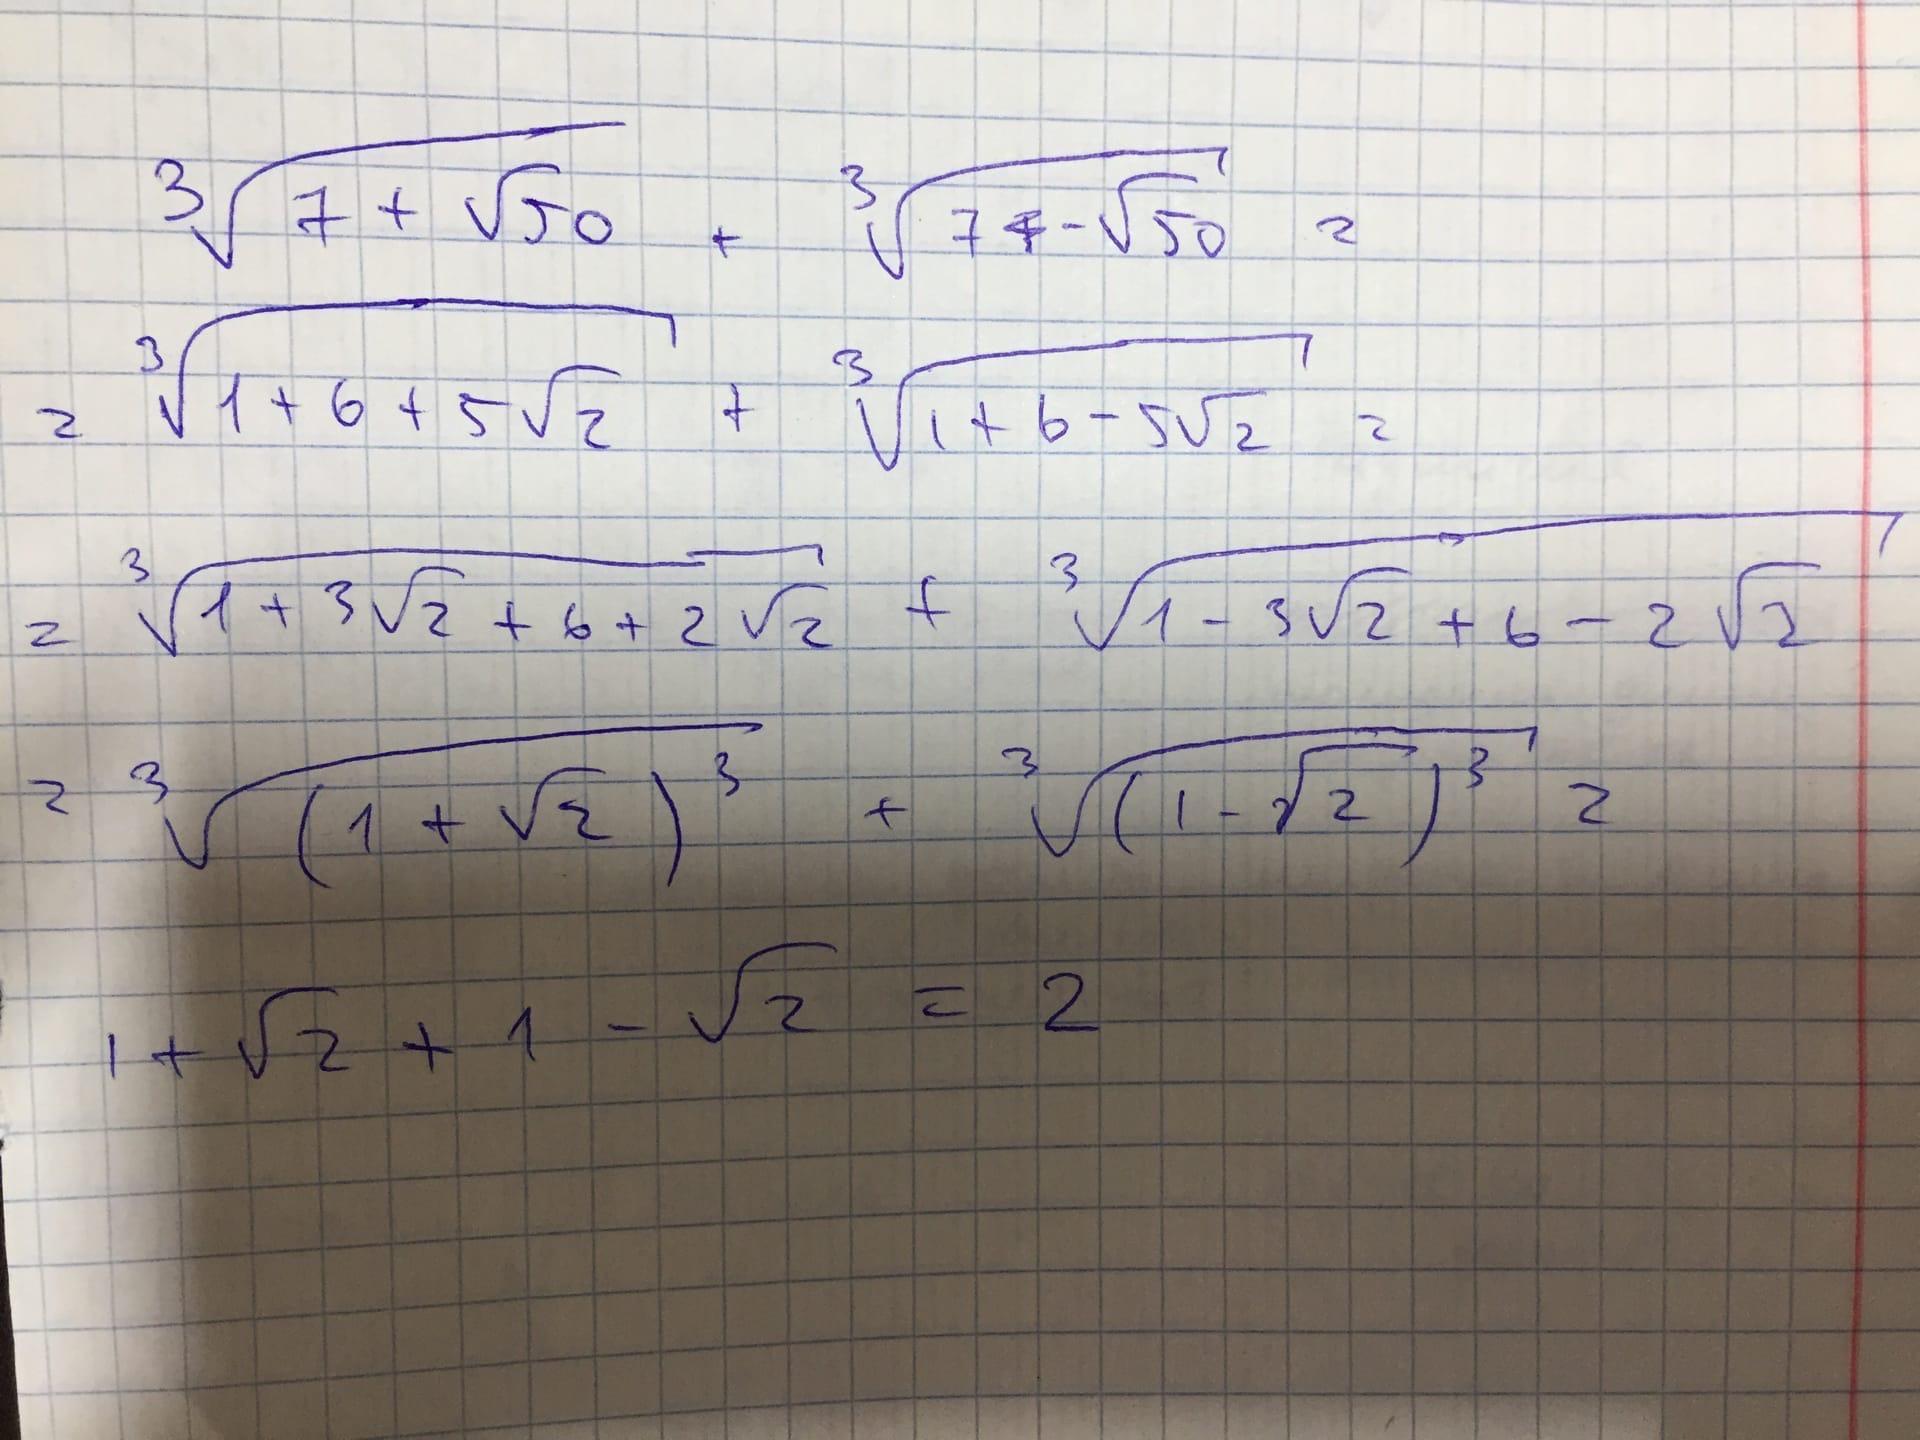 ∛(7 + √50) + ∛(7 - √50) =
= ∛(1 + 6 + 5√2) + ∛(1 + 6 - 5√2) =
= ∛(1 + 3√2 + 6 + 2√2) + ∛(1 - 3√2 + 6 - 2√2)
= ∛((1 + √2)³) + ∛((1 - √2)³) =
1 + √2 + 1 - √2 = 2